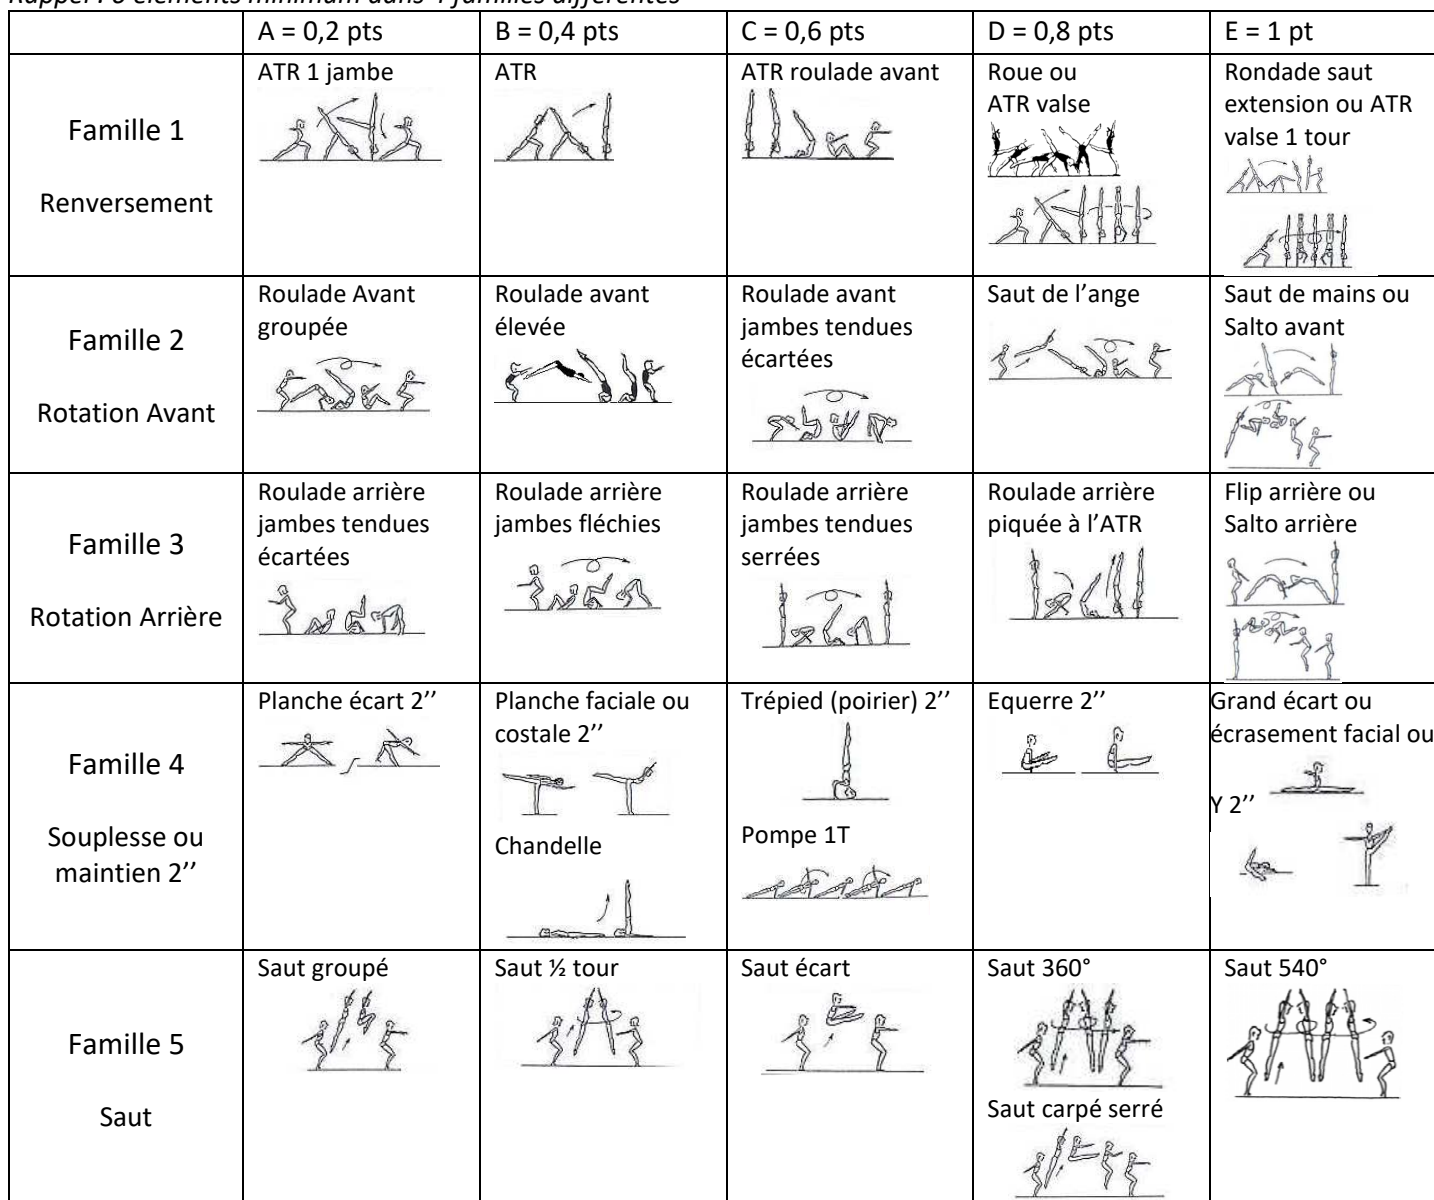 Rappel : 6 éléments minimum dans 4 familles différentes
A = 0,2 pts
B = 0,4 pts
C = 0,6 pts
D = 0,8 pts
E = 1 pt
Famille 1
Renversement
ATR 1 jambe
ATR
ATR roulade avant
Roue ou
ATR valse
Rondade saut
extension ou ATR
valse 1 tour
Famille 2
Rotation Avant
Roulade Avant
groupée
Roulade avant
élevée
Roulade avant
jambes tendues
écartées
Saut de l’ange
Saut de mains ou
Salto avant
Famille 3
Rotation Arrière
Roulade arrière
jambes tendues
écartées
Roulade arrière
jambes fléchies
Roulade arrière
jambes tendues
serrées
Roulade arrière
piquée à l’ATR
Flip arrière ou
Salto arrière
Famille 4
Souplesse ou
maintien 2’’
Planche écart 2’’
Planche faciale ou
costale 2’’
Chandelle
Trépied (poirier) 2’’
Pompe 1T
Equerre 2’’
Grand écart ou
écrasement facial ou
Y 2’’
Famille 5
Saut
Saut groupé
Saut ½ tour
Saut écart
Saut 360°
Saut carpé serré
Saut 540°